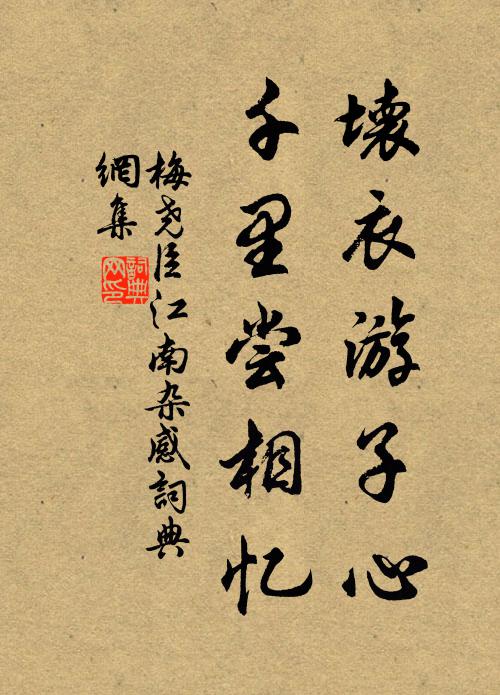 壞衣游子心
千里尝相忆
梅尧臣江南杂感詞典
網集
詞典
网印